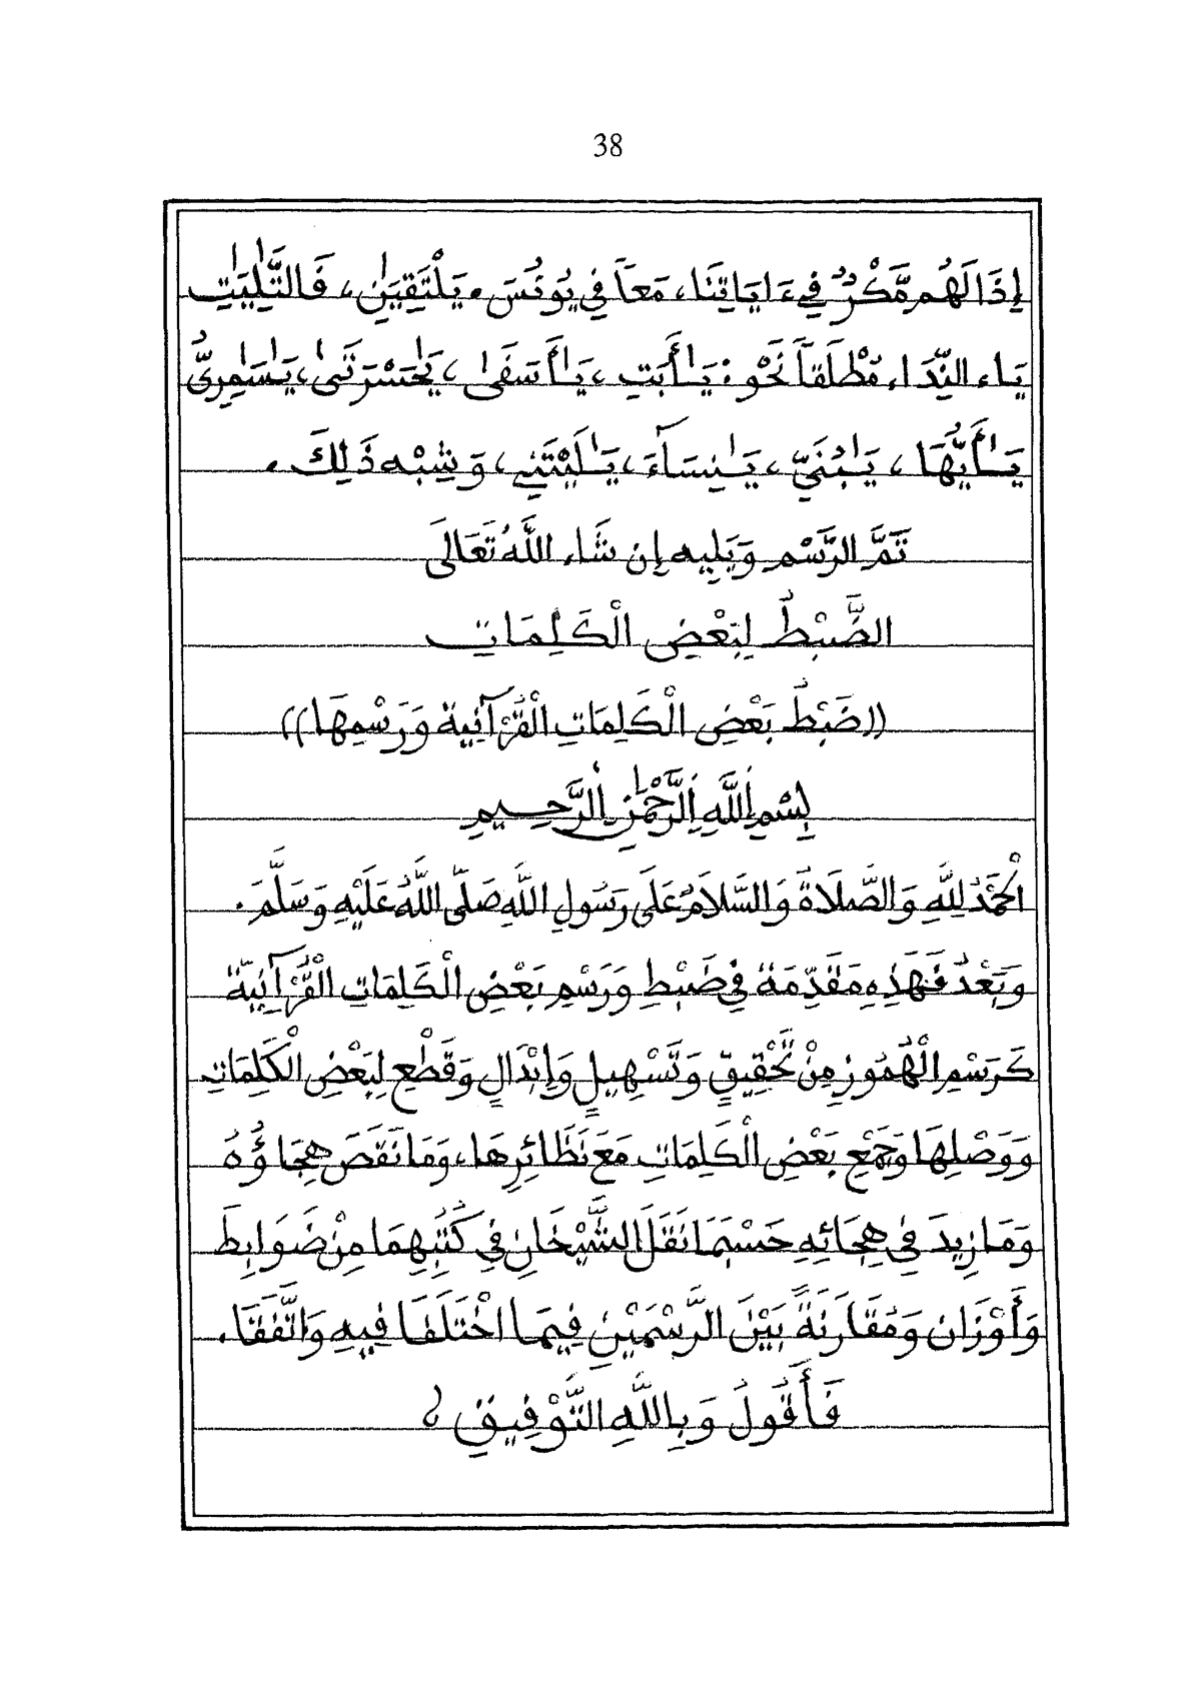 38
إِذَا لَهُم مَّكْرٌ فِي ءَايَاتِنَا، مَعاً فِي يُونُسَ. يَلْتَقِيَٰنِ، فَالتَّٰلِيَٰتِ
يَاء النِّدَاء مُطْلَقاً نَحْوُ: يَٰأَبَتِ، يَٰأَسَفَىٰ، يَٰحَسْرَتَىٰ، يَٰسَٰمِرِيُّ
يَٰأَيُّهَا، يَٰبُنَيِّ، يَٰنِسَآءَ، يَٰلَيْتَنِي، وَشِبْه ذَٰلِكَ.
تَمَّ الرَّسْم وَيَلِيه إِن شَاء اللَّهُ تَعَالَى
الضَّبْطُ لِبَعْضِ الْكَلِمَاتِ
((ضَبْطُ بَعْضِ الْكَلِمَاتِ الْقُرْآنِيةِ وَرَسْمِهَا))
بِسْمِ اللَّهِ الرَّحْمَٰنِ الرَّحِيمِ
الْحَمْدُ لِلَّهِ وَالصَّلَاةُ وَالسَّلَامُ عَلَى رَسُولِ اللَّهِ صَلَّى اللَّهُ عَلَيْهِ وَسَلَّمَ.
وَبَعْدُ فَهَذِهِ مُقَدِّمَةٌ فِي ضَبْطِ وَرَسْمِ بَعْضِ الْكَلِمَاتِ الْقُرْآنِيَّةِ
كَرَسْمِ الْهُمُوزِ مِنْ تَحْقِيقٍ وَتَسْهِيلٍ وَإِبْدَالٍ وَقَطْعٍ لِبَعْضِ الْكَلِمَاتِ
وَوَصْلِهَا وَجَمْعِ بَعْضِ الْكَلِمَاتِ مَعَ نَظَائِرِهَا، وَمَا نَقَصَ هِجَاؤُهُ
وَمَا زِيدَ فِي هِجَائِهِ حَسْبَمَا نَقَلَ الشَّيْخَانِ فِي كُتُبِهِمَا مِنْ ضَوَابِطَ
وَأَوْزَان وَمُقَارَنَةً بَيْنَ الرَّسْمَيْنِ فِيمَا اخْتَلَفَا فِيهِ وَاتَّفَقَا.
فَأَقُولُ وَبِاللَّهِ التَّوْفِيقِ؛